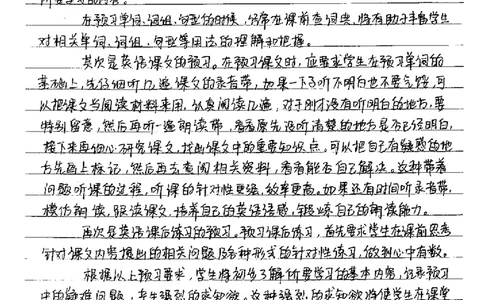 在预习单词、词组、句型的时候,经常在课前查词典,将有助于丰富学生
对相关单词、词组、句型等用法的理解和把握。
其次是英语课文的预习。在预习课文时,应要求学生在预习单词的
基础上,先仔细听几遍课文的录音带,如果一下子听不明白也不要气馁,可
以把课文当阅读材料来用,认真阅读几遍,对于刚才没有听明白的地方,要
特别留意,然后再听一遍朗读带,看看原先没听清楚的地方是否已经明白,
接下来应细心研究课文,找出课文中的重要知识点,可以把自己有疑惑的地
方先画上标记,然后再去查阅相关资料,看看能否自己解决。这种带着
问题听课的过程,听课的针对性更强,效率更高。如果还有时间听录音带,
模仿朗读,跟读课文,培养自己的英语语感,锻炼自己的朗读能力。
再次是英语课后练习的预习。预习课后练习,首先要求学生在课前思考
针对课文内容提出的相关问题及各种形式的针对性练习,做到心中有数。
根据以上预习要求,学生将初步了解所要学习的基本内容,记录预习
中的疑难问题,产生强烈的求知欲。这种强烈的求知欲将使学生在课堂